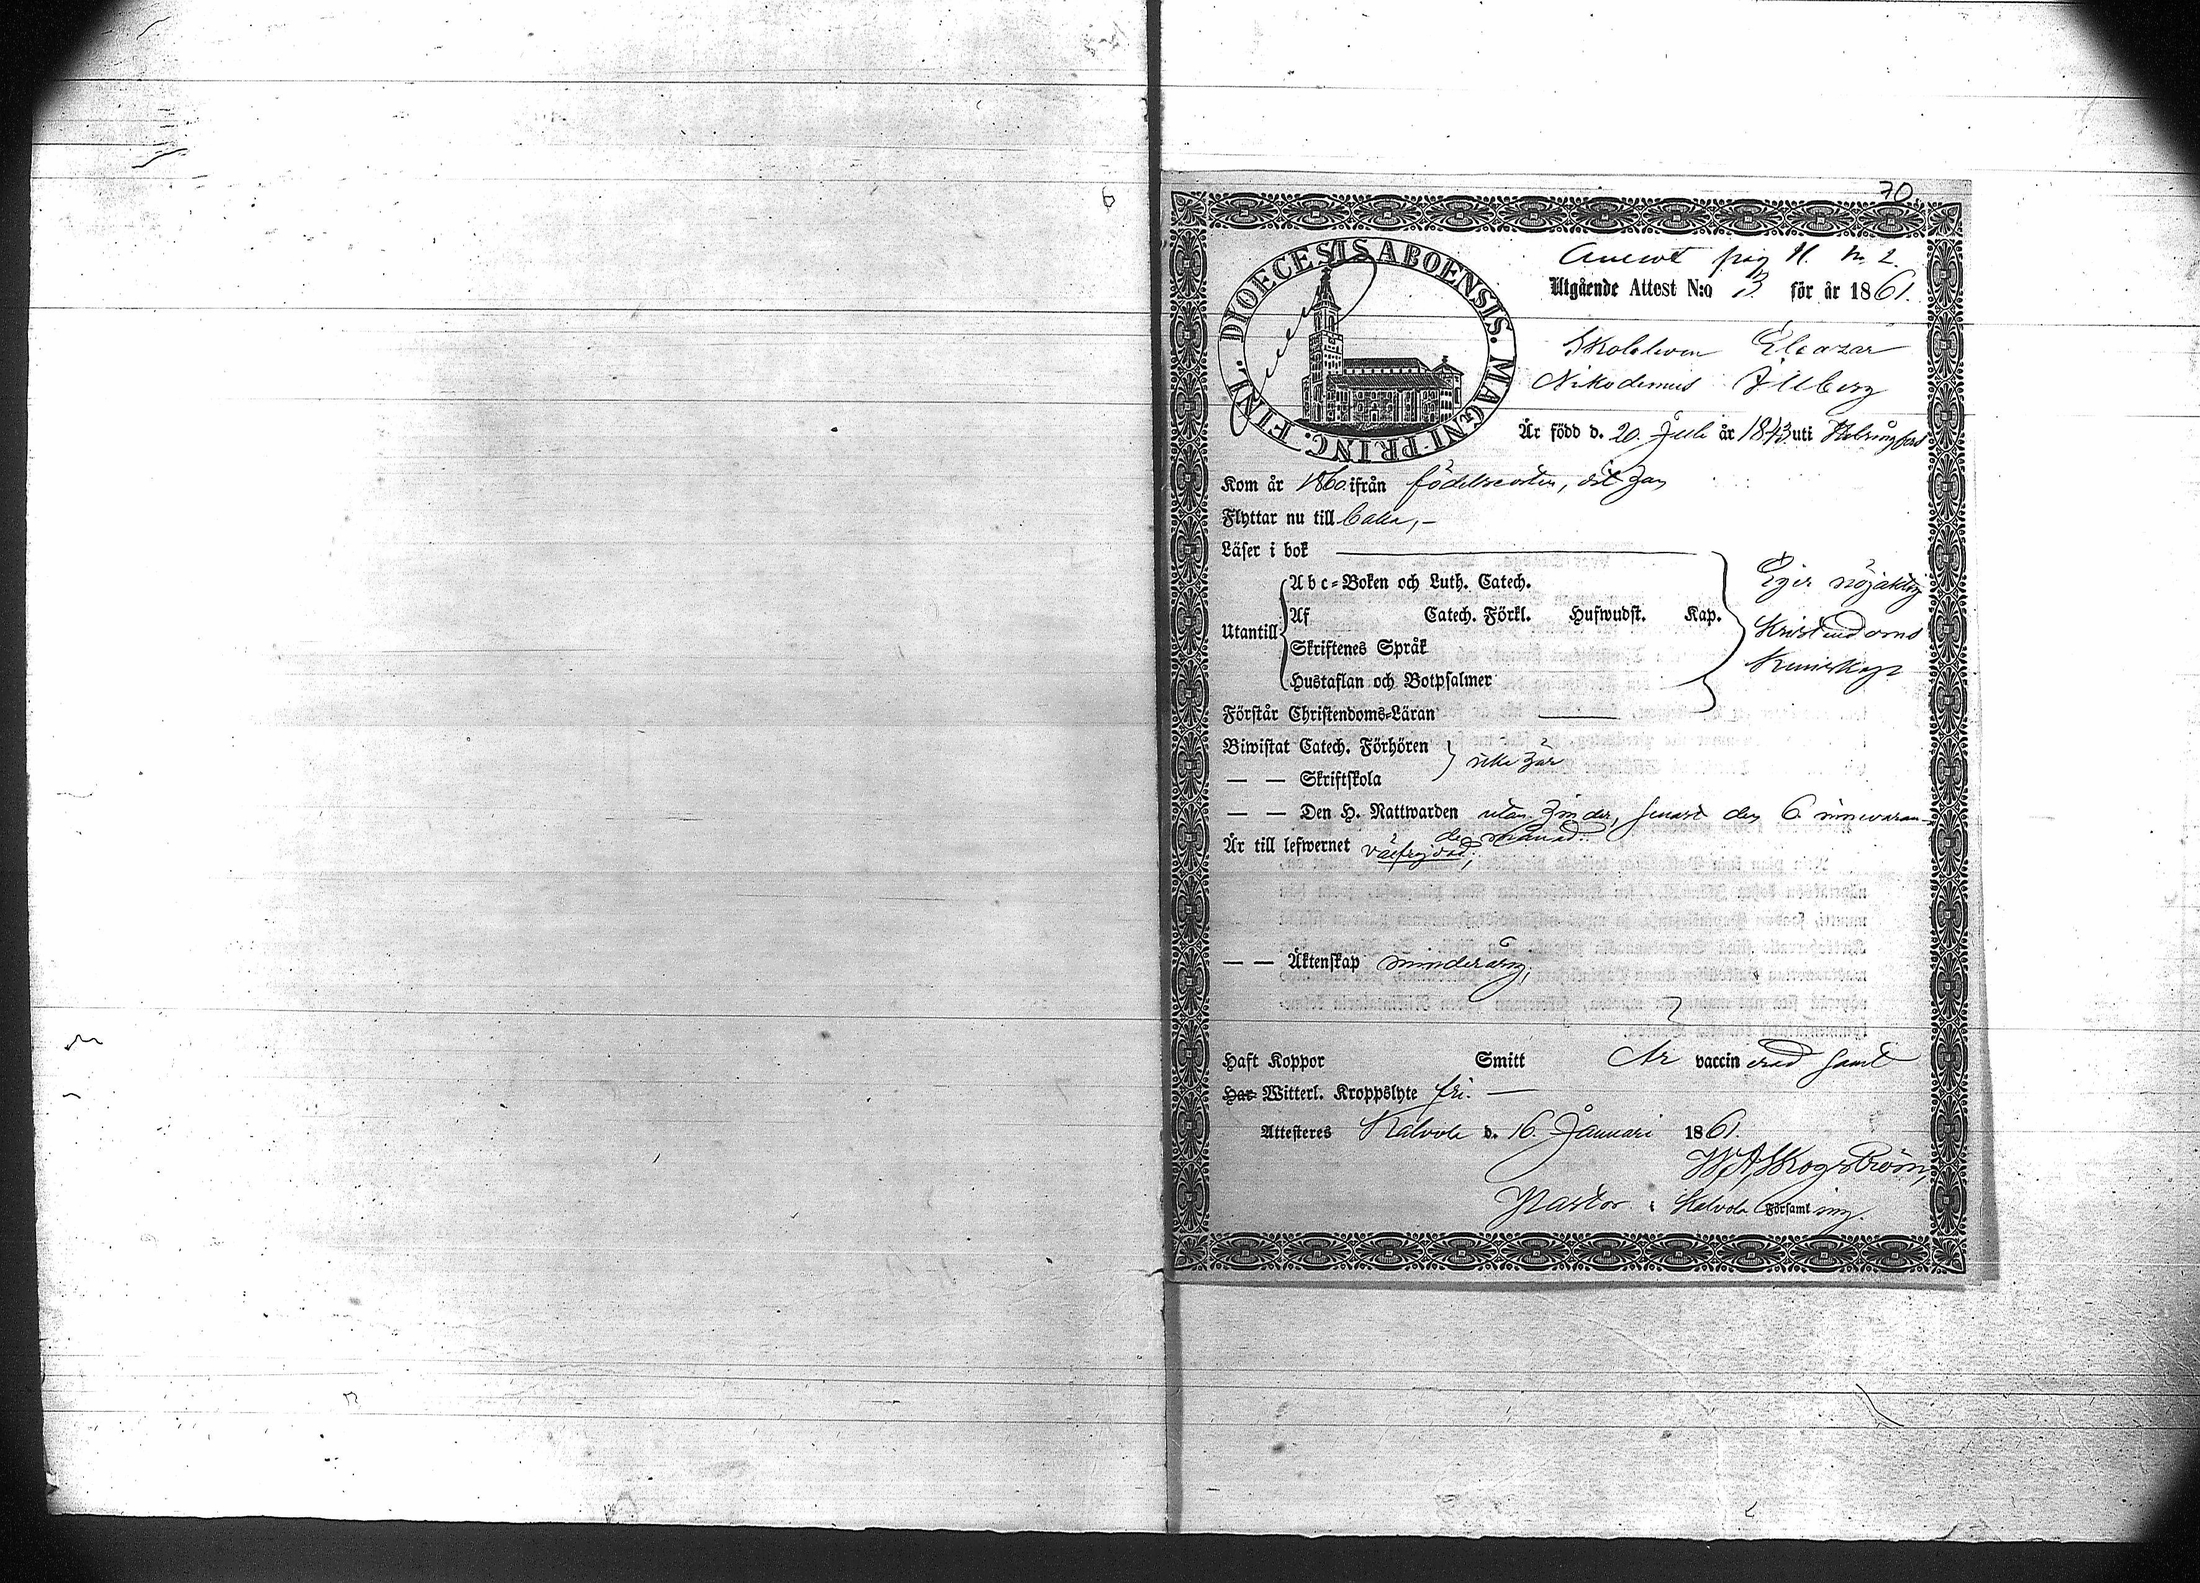 70.
H. N. 2.
DIOECESIS ABOENSIS. MAGNI PRINC. FINL.
Utgående Attest N:o 3 för år 1861.
Skoleleven Eleazar
Nikodemus Tillberg
Är född d. 20. Juli år 1843 uti Helsingfors
Kom år 1860 ifrån födelseorten,
Flyttar nu till
Läser i bok
Utantill
Abc-Boken och Luth. Catech.
Af Catech. Förkl. Hufwudst. Kap.
Skriftenes Språk
Hustaflan och Botpsalmer
Eger nöjaktig
Kristendoms
Kunskap
Förstår Christendoms-Läran
Biwistat Catech. Förhören
— — Skriftskola
icke här
— — Den H. Nattwarden utan hinder, senast den 6. innevaran-
de månad.
Är till lefwernet välfrejdad;
— — Äktenskap minderårig;
Haft Koppor Smitt Är vaccinerad samt
Har Witterl. Kroppslyte fri. —
Attesteres Kalvola d. 16. Januari 1861.
W A Skogström,
Pastor i Kalvola Församling.